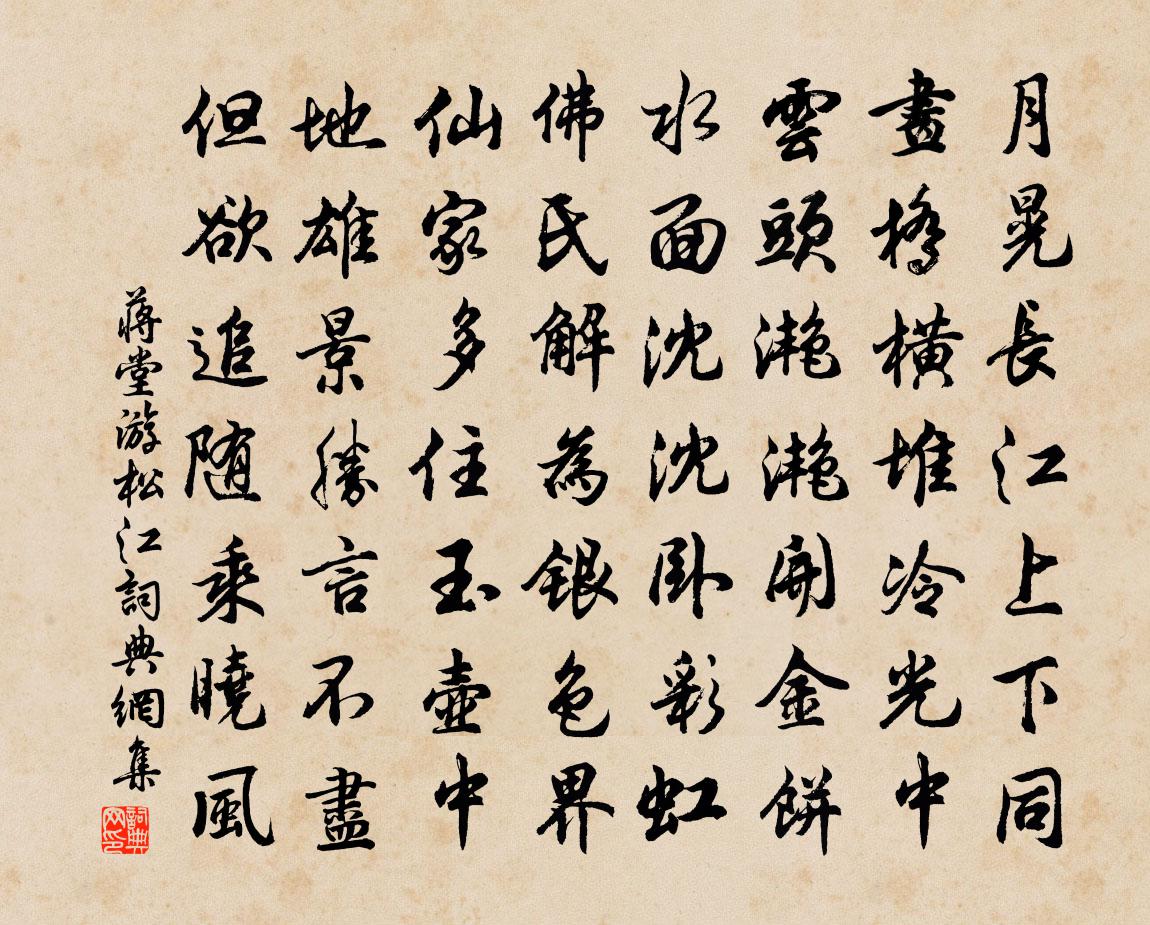 月晃長江上下同
畫橋橫堆冷光中
雲頭灩灩開金餅
水面沈沈臥彩虹
佛氏解為銀色界
仙家多住玉壺中
地雄景勝言不盡
但欲追隨乘曉風
蔣堂游松江詞典網集
詞典网印